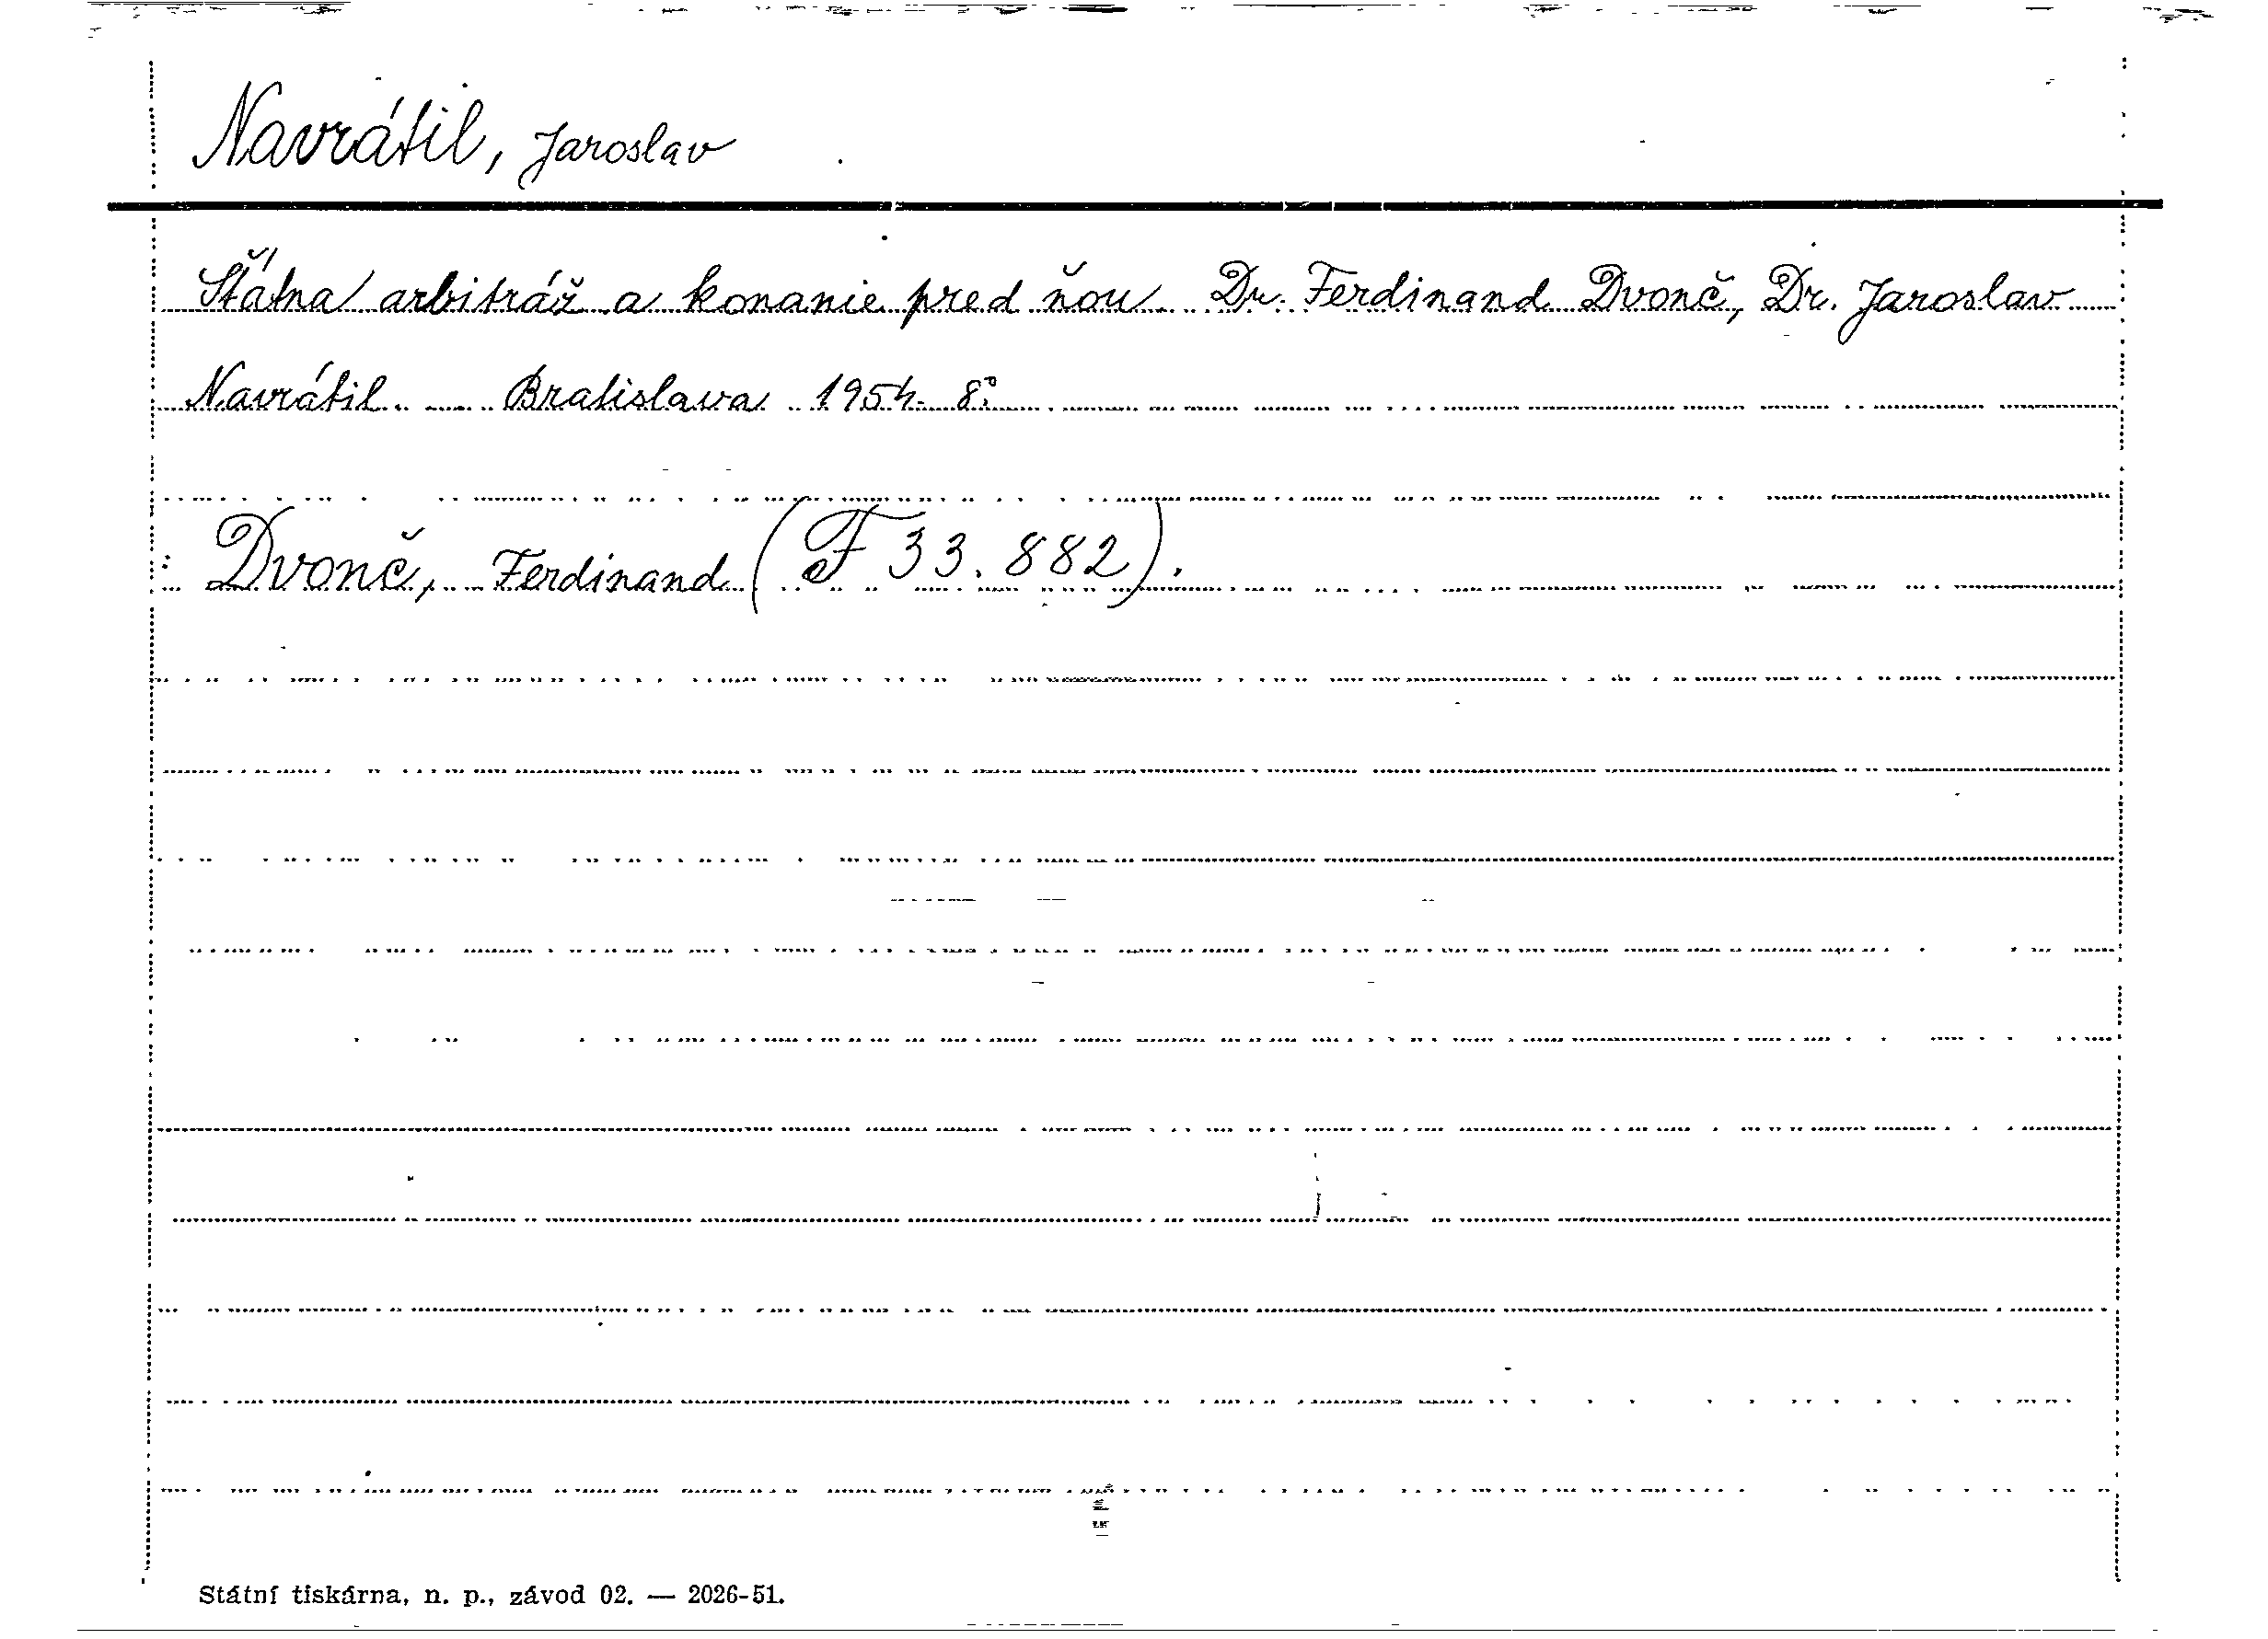 Navrátil, Jaroslav
Štátna arbitráž a konanie pred ňou. Dr. Ferdinand Dvonč, Dr. Jaroslav
Navrátil. Bratislava 1954. 8°.
Dvonč, Ferdinand (F 33.882).
Státní tiskárna, n. p., závod 02. — 2026-51.